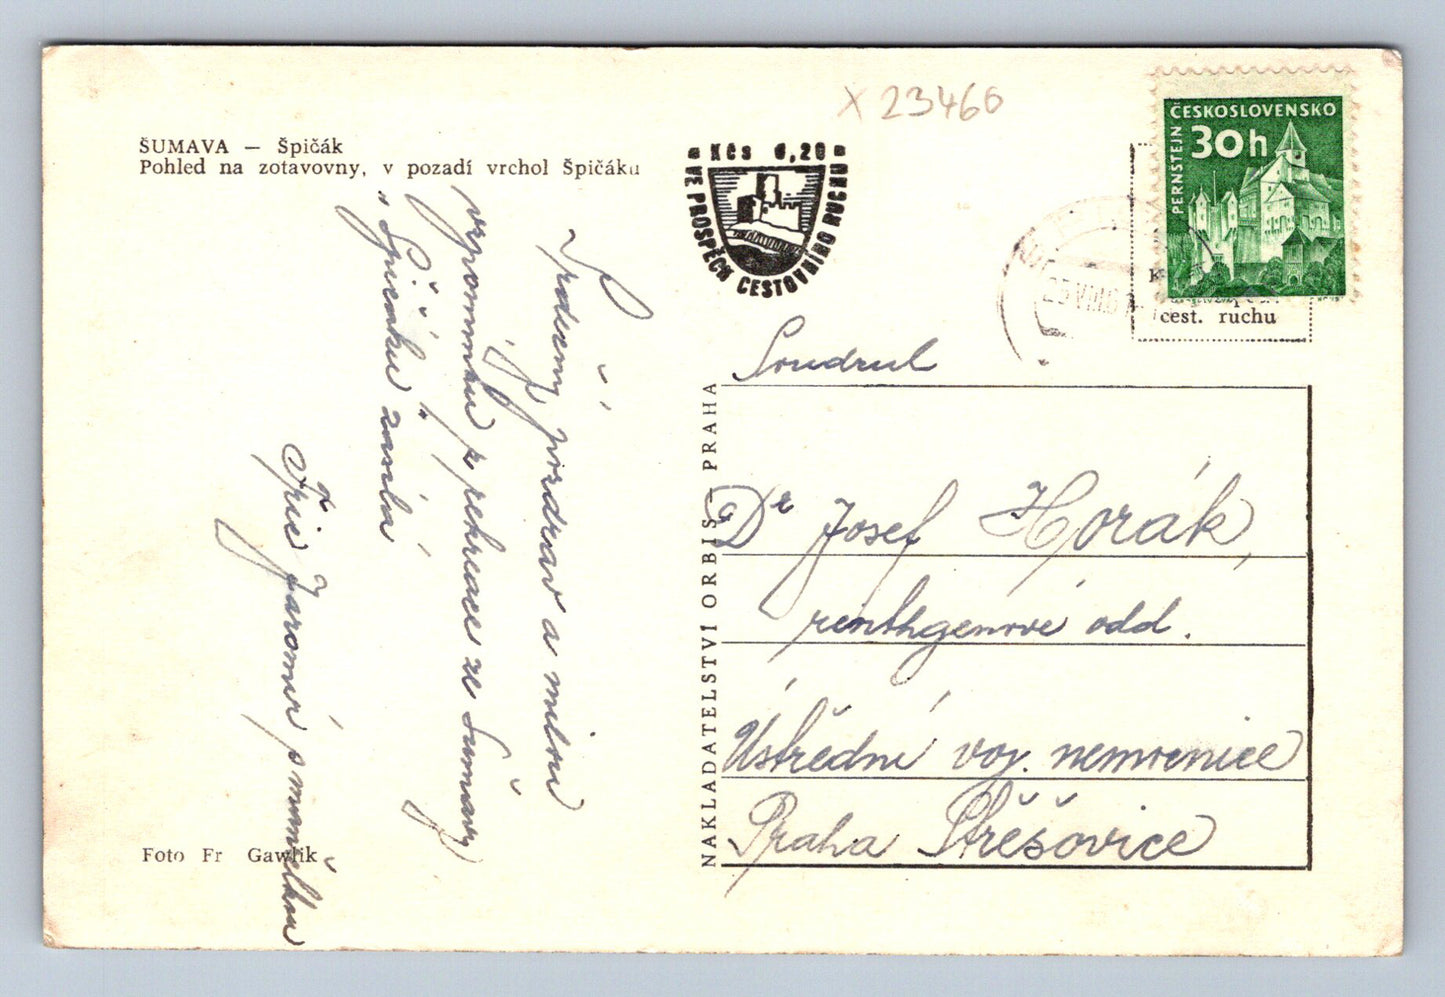 x 23466
ŠUMAVA — Špičák
Pohled na zotavovny, v pozadí vrchol Špičáku
Kčs 0,20
VE PROSPĚCH CESTOVNÍHO RUCHU
ČESKOSLOVENSKO
30h
PERNŠTEJN
K
cest. ruchu
Srdečný pozdrav a milou
vzpomínku z rekreace ze Šumavy
Špičáku zasílá
Fric Jaromír s manželkou
Foto Fr Gawlik
NAKLADATELSTVÍ ORBIS — PRAHA
Soudruh
Dr Josef Horák,
renthgenové odd.
Ústřední voj. nemocnice
Praha Střešovice